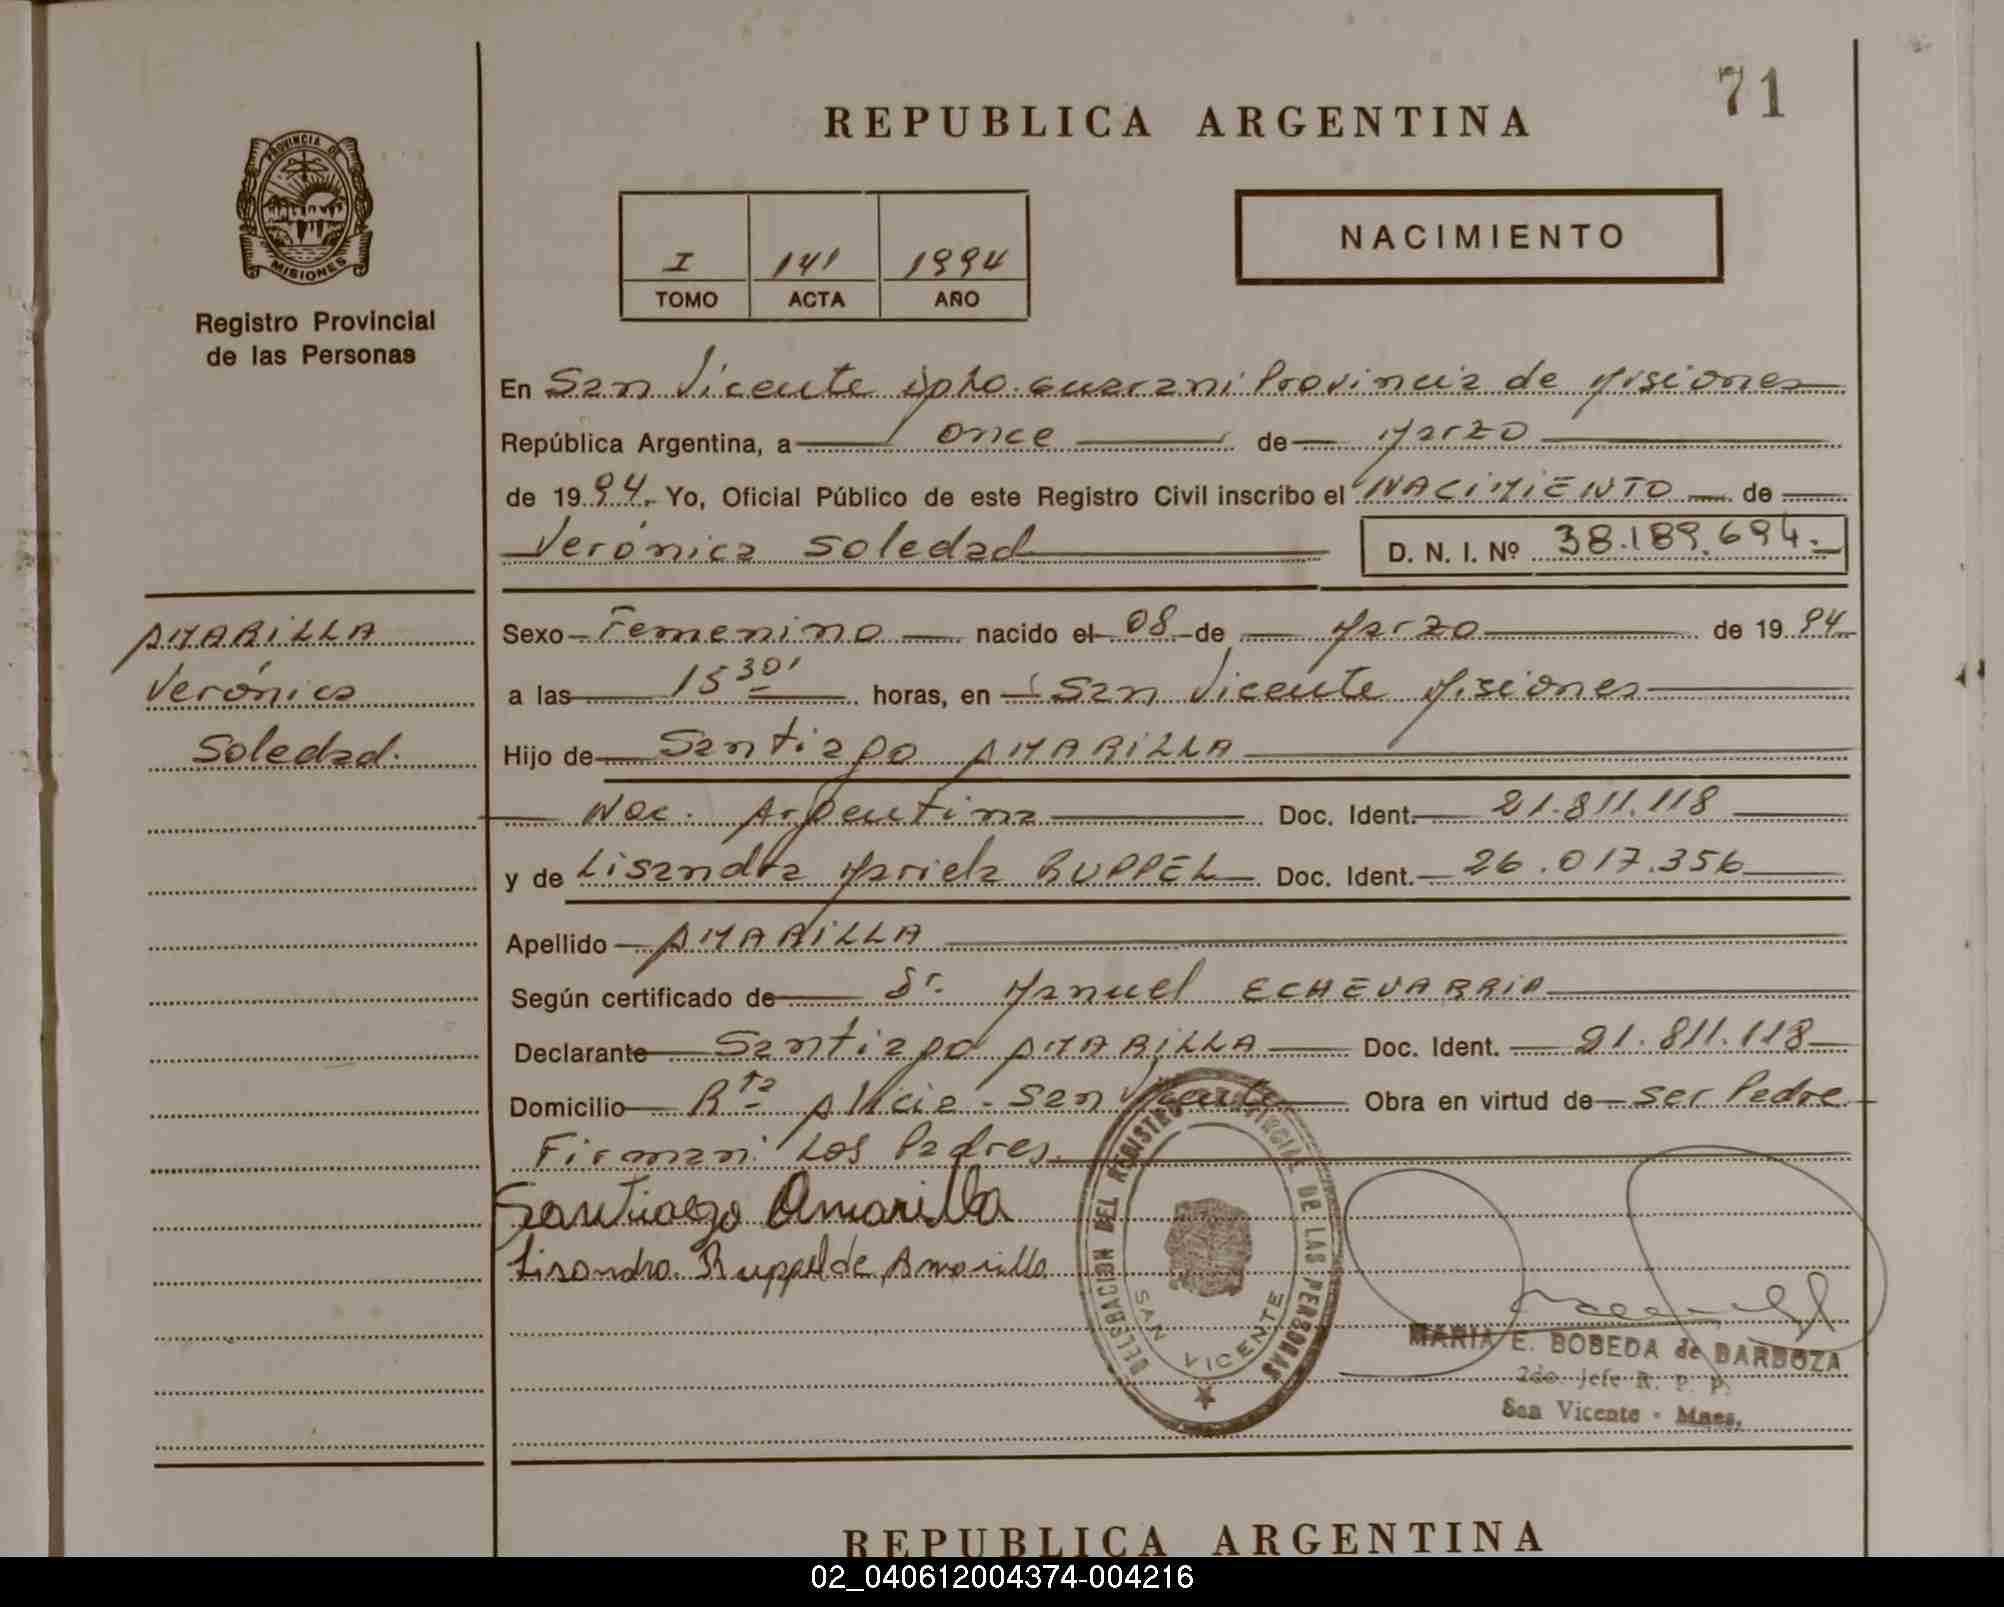 71
REPUBLICA ARGENTINA
PROVINCIA DE
MISIONES
Registro Provincial
de las Personas
I 141 1994
TOMO ACTA AÑO
NACIMIENTO
En San Vicente Dpto. Guaraní Provincia de Misiones
República Argentina, a once de Marzo
de 1994. Yo, Oficial Público de este Registro Civil inscribo el NACIMIENTO de
Verónica Soledad
D. N. I. Nº 38.189.694.
AMARILLA
Verónica
Soledad.
Sexo Femenino nacido el 08 de Marzo de 1994
a las 15 30' horas, en San Vicente Misiones
Hijo de Santiago AMARILLA
Nac. Argentina Doc. Ident. 21.811.118
y de Lisandra Mariela RUPPEL Doc. Ident. 26.017.356
Apellido AMARILLA
Según certificado de Dr. Manuel ECHEVARRIA
Declarante Santiago AMARILLA Doc. Ident. 21.811.118
Domicilio Rta Alicia - San Vicente Obra en virtud de ser Padre
Firman: Los Padres.
Santiago Amarilla
Lisandra Ruppel de Amarilla
DELEGACION DEL REGISTRO PROVINCIAL DE LAS PERSONAS
SAN VICENTE
MARIA E. BOBEDA de BARBOZA
2do. Jefe R. P. P.
San Vicente - Mnes.
REPUBLICA ARGENTINA
02_040612004374-004216